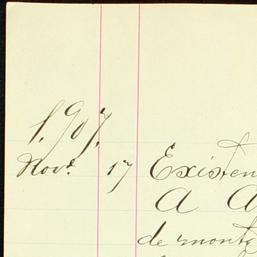 1,907,
Novᵉ 17 Existen
A A
de monta